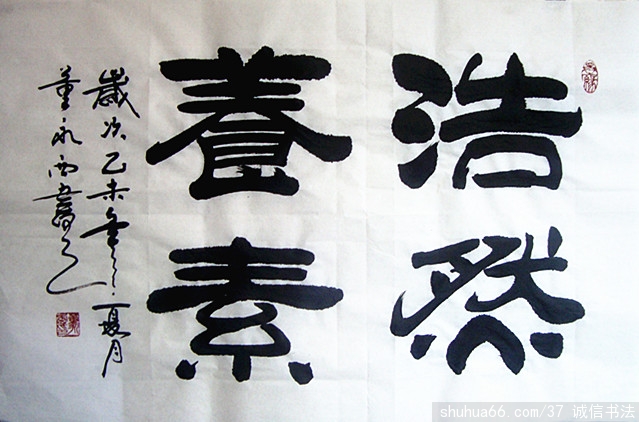 浩然
養素
歲次乙未年之夏月
董永西書之
shuhua66.com/37 诚信书法